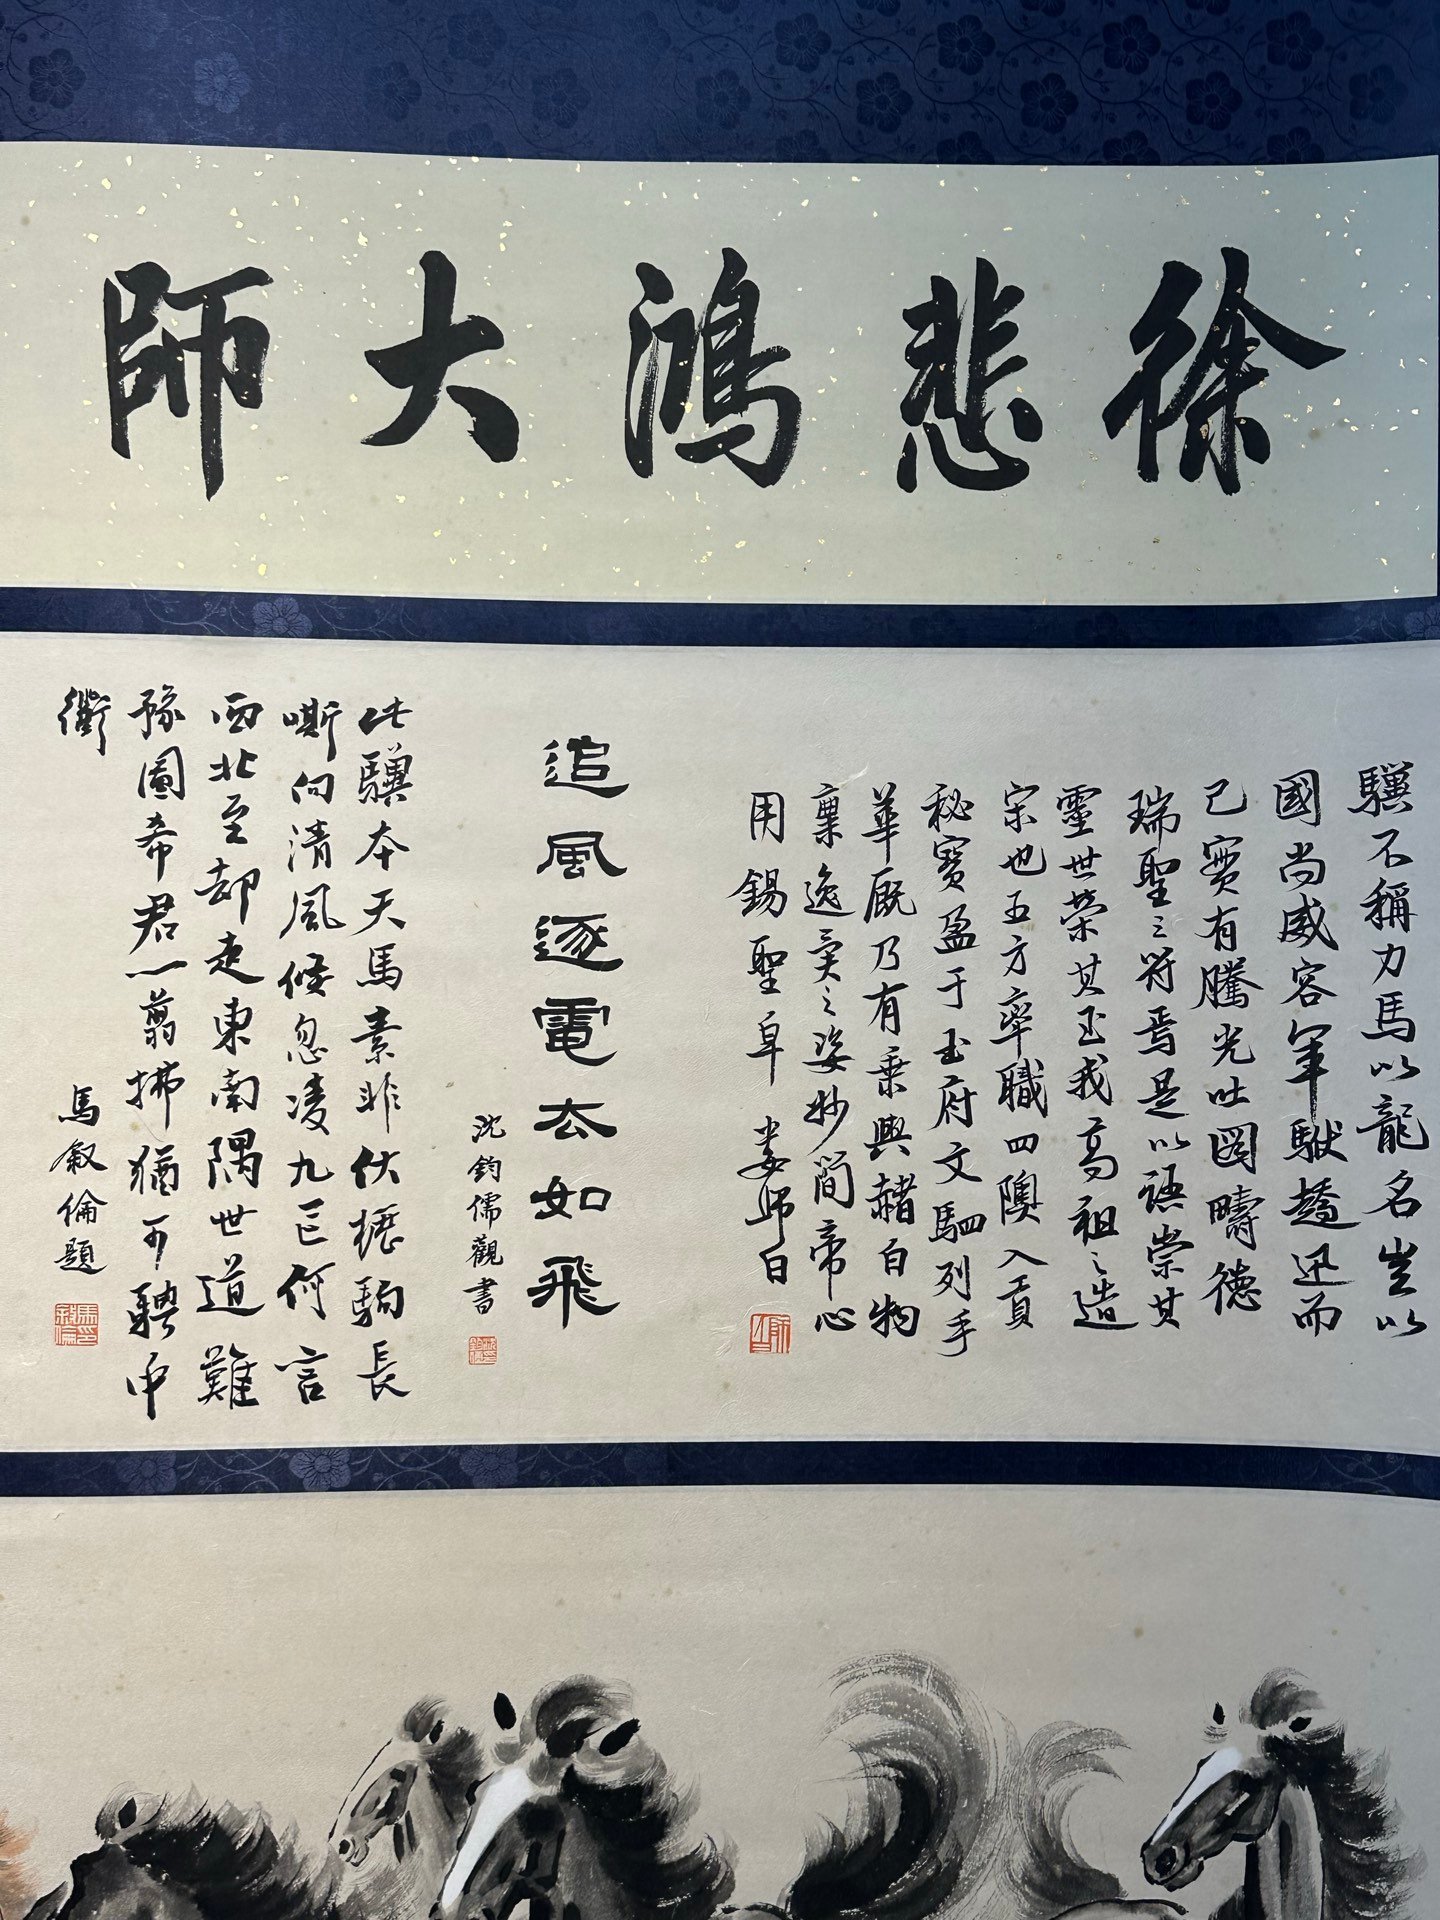 徐悲鴻大師
驥不稱力馬以龍名豈以
國尚威容軍駃趫迅而
已實有騰光吐圖疇德
瑞聖之符焉是以語崇其
靈世榮其至我高祖之造
宗也五方率職四隩入貢
秘寶盈于玉府文駟列乎
華厩乃有乘輿赭白特
稟逸異之姿妙簡帝心
用錫聖皁 婁師白
追風逐電去如飛
沈鈞儒觀書
此驥本天馬素非伏櫪駒長
嘶向清風倏忽凌九區何言
西北至却走東南隅世道難
豫圖希君一翦拂猶可騁中
衢
馬敘倫題
馬敘倫